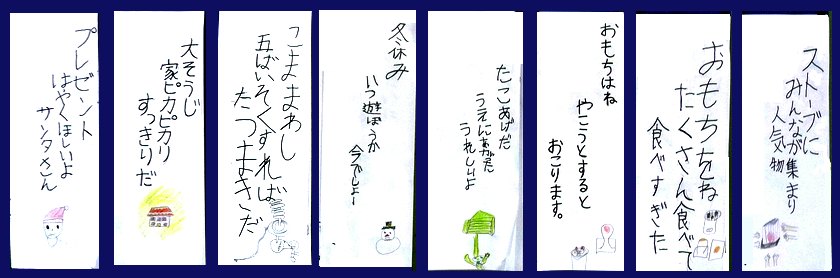 ストーブに
みんなが集まり
人気物
おもちをね
たくさん食べて
食べすぎた
おもちはね
やこうとすると
おこります。
たこあげだ
うえにあがた
うれしいよ
冬休み
いつ遊ぼうか
今でしょー
こままわし
五ばいそくすれば
たつまきだ
大そうじ
家ピカピカリ
すっきりだ
プレゼント
はやくほしいよ
サンタさん